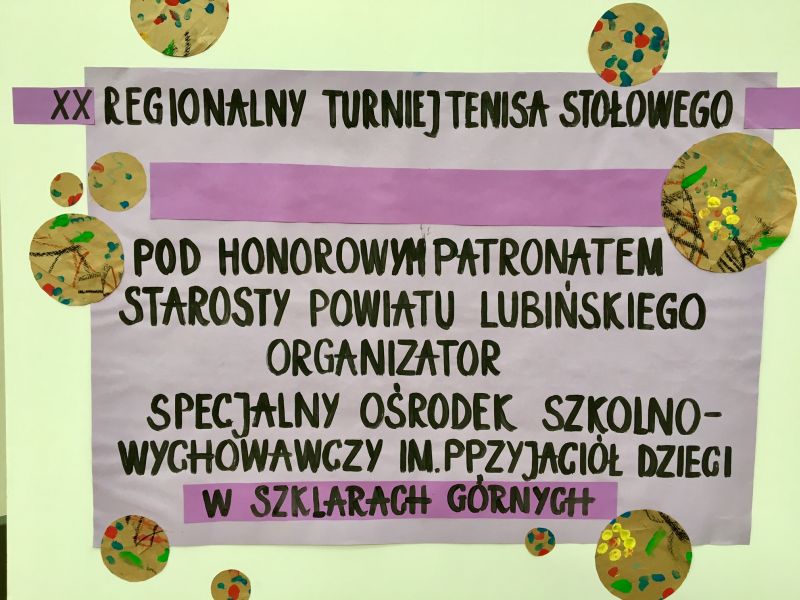 XX REGIONALNY TURNIEJ TENISA STOŁOWEGO
POD HONOROWYM PATRONATEM
STAROSTY POWIATU LUBIŃSKIEGO
ORGANIZATOR
SPECJALNY OŚRODEK SZKOLNO-
WYCHOWAWCZY IM. PPZYJACIÓŁ DZIECI
W SZKLARACH GÓRNYCH